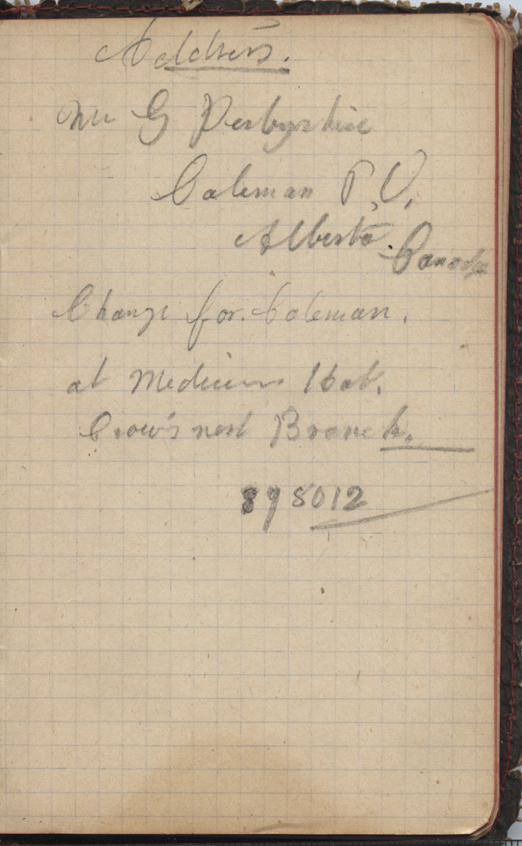 Address.
Mr G Derbyshire
Coleman P.O,
Alberta. Canada
Change for. Coleman.
at Medicine Hat.
Crow's nest Branch.
898012